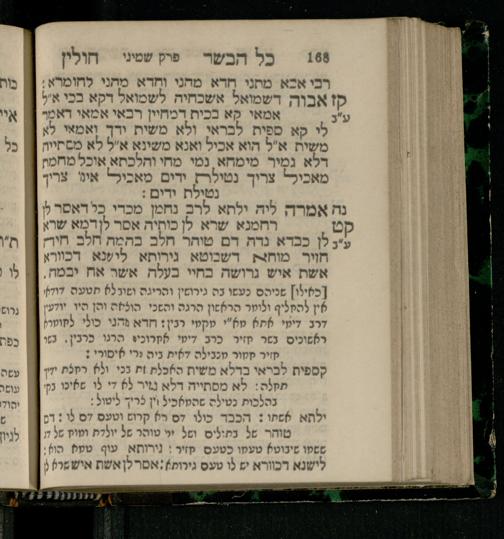 168 כל הבשר פרק שמיני חולין
רבי אבא מתני חדא מהני וחדא מהני לחומרא:
קז אבוה דשמואל אשכחיה לשמואל דקא בכי א"ל
ע"ב אמאי קא בכית דמחיין רבאי אמאי דאמר
לי קא ספית לבראי ולא משית ידך ואמאי לא
משית א"ל הוא אכיל ואנא משינא א"ל לא מסתייה
דלא גמיר מימחא נמי מחי והלכתא אוכל מחמת
מאכיל צריך נטילת ידים מאכיל אינו צריך
נטילת ידים:
נה אמרה ליה ילתא לרב נחמן מכדי כל דאסר לן
קט רחמנא שרא לן כותיה אסר לן דמא שרא
ע"ב לן כבדא נדה דם טוהר חלב בהמה חלב חיה
חזיר מוחא דשבוטא גירותא לישנא דכוורא
אשת איש גרושה בחיי בעלה אשר אח יבמה.
[כאילו] שניהם נעשו בה גירושין והריגה ושובלא תטעה
אין להחליף ולומר הראשון הרגה והשני הוליאה והן היו יודעין
דרב דימי אתא מא"י מקמי רבין: חדא מהני כולי לחומרא
ראשונים בשר חזיר כרב דימי אחרונים הרגו כרבין. בשר
חזיר חמור מנבילה דאית ביה תרי איסורי:
קספית לבראי בדלא משית האכלת את בני ולא רחלת ידיך
תחלה: לא מסתייה דלא גמיר לא די לו שאינו בקי
בהלכות נטילה שהמאכיל אין צריך ליטול:
ילתא אשתו: הכבד כולו דם הא קרוש וטעם דם לו: דם
טוהר של בתולים ושל ימי טוהר של יולדת
ששמו שיבוטא טעמו כטעם חזיר: גירותא עוף טמא הוא:
לישנא דכוורא יש לו טעם גירותא: אסר לן אשת איש שרא לן